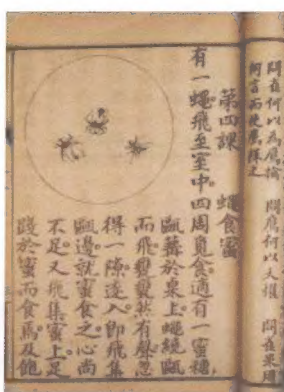 問 何以為鷹擒 問鷹何以大懼 問
何言而使鷹釋之
第四課 蠅食蜜
有一蠅飛至室中四周覓食適有一蜜糖
甌 於桌上蠅繞甌
而飛 然有聲忽
得一隙遂入即飛集
甌邊就蜜食之心尚
不足又飛集蜜上足
踐於蜜而食焉及飽